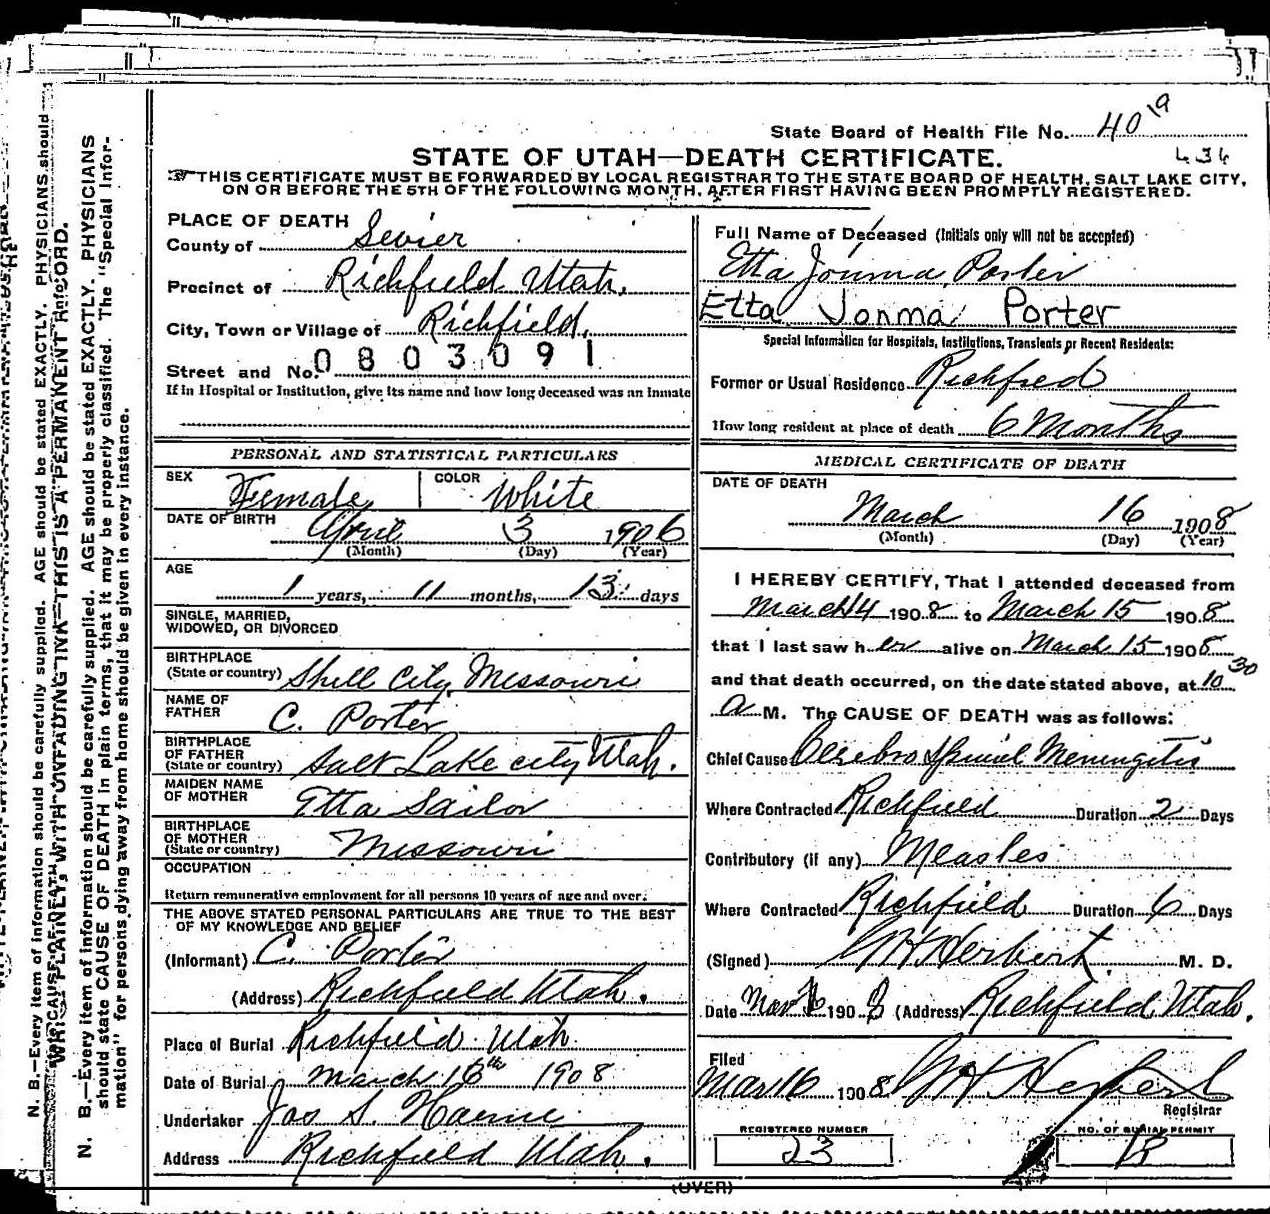 State Board of Health File No. 40 19
434
STATE OF UTAH—DEATH CERTIFICATE.
THIS CERTIFICATE MUST BE FORWARDED BY LOCAL REGISTRAR TO THE STATE BOARD OF HEALTH, SALT LAKE CITY,
ON OR BEFORE THE 5TH OF THE FOLLOWING MONTH, AFTER FIRST HAVING BEEN PROMPTLY REGISTERED.
PLACE OF DEATH
County of Sevier
Precinct of Richfield Utah.
City, Town or Village of Richfield.
Street and No. 0803091
If in Hospital or Institution, give its name and how long deceased was an inmate
Full Name of Deceased (Initials only will not be accepted)
Etta Jonma Porter
Etta Jonma Porter
Special Information for Hospitals, Institutions, Transients or Recent Residents:
Former or Usual Residence Richfied
How long resident at place of death 6 Months
PERSONAL AND STATISTICAL PARTICULARS
SEX Female COLOR White
DATE OF BIRTH April 3 1906
(Month) (Day) (Year)
AGE
1 years, 11 months, 13 days
SINGLE, MARRIED,
WIDOWED, OR DIVORCED
BIRTHPLACE
(State or country) Shell City, Missouri
NAME OF
FATHER C. Porter
BIRTHPLACE
OF FATHER
(State or country) Salt Lake city Utah.
MAIDEN NAME
OF MOTHER Etta Sailor
BIRTHPLACE
OF MOTHER
(State or country) Missouri
OCCUPATION
Return remunerative employment for all persons 10 years of age and over.
THE ABOVE STATED PERSONAL PARTICULARS ARE TRUE TO THE BEST
OF MY KNOWLEDGE AND BELIEF
(Informant) C. Porter
(Address) Richfield Utah.
Place of Burial Richfield Utah
Date of Burial March 16th 1908
Undertaker Jas S. Horne
Address Richfield Utah.
MEDICAL CERTIFICATE OF DEATH
DATE OF DEATH
March 16 1908
(Month) (Day) (Year)
I HEREBY CERTIFY, That I attended deceased from
March 14 1908 to March 15 1908
that I last saw her alive on March 15 1908
and that death occurred, on the date stated above, at 10 30
a M. The CAUSE OF DEATH was as follows:
Chief Cause Cerebro Spinal Meningitis
Where Contracted Richfield Duration 2 Days
Contributory (if any) Measles
Where Contracted Richfield Duration 6 Days
(Signed) G H Herbert M. D.
Date Mar 16 1908 (Address) Richfield Utah.
Filed
Mar 16 1908 G H Herbert
Registrar
REGISTERED NUMBER
23
NO. OF BURIAL PERMIT
(OVER)
N. B.—Every item of information should be carefully supplied. AGE should be stated EXACTLY. PHYSICIANS
should state CAUSE OF DEATH in plain terms, that it may be properly classified. The "Special Infor-
mation" for persons dying away from home should be given in every instance.
N. B.—Every item of information should be carefully supplied. AGE should be stated EXACTLY. PHYSICIANS should
WRITE PLAINLY, WITH UNFADING INK—THIS IS A PERMANENT RECORD.